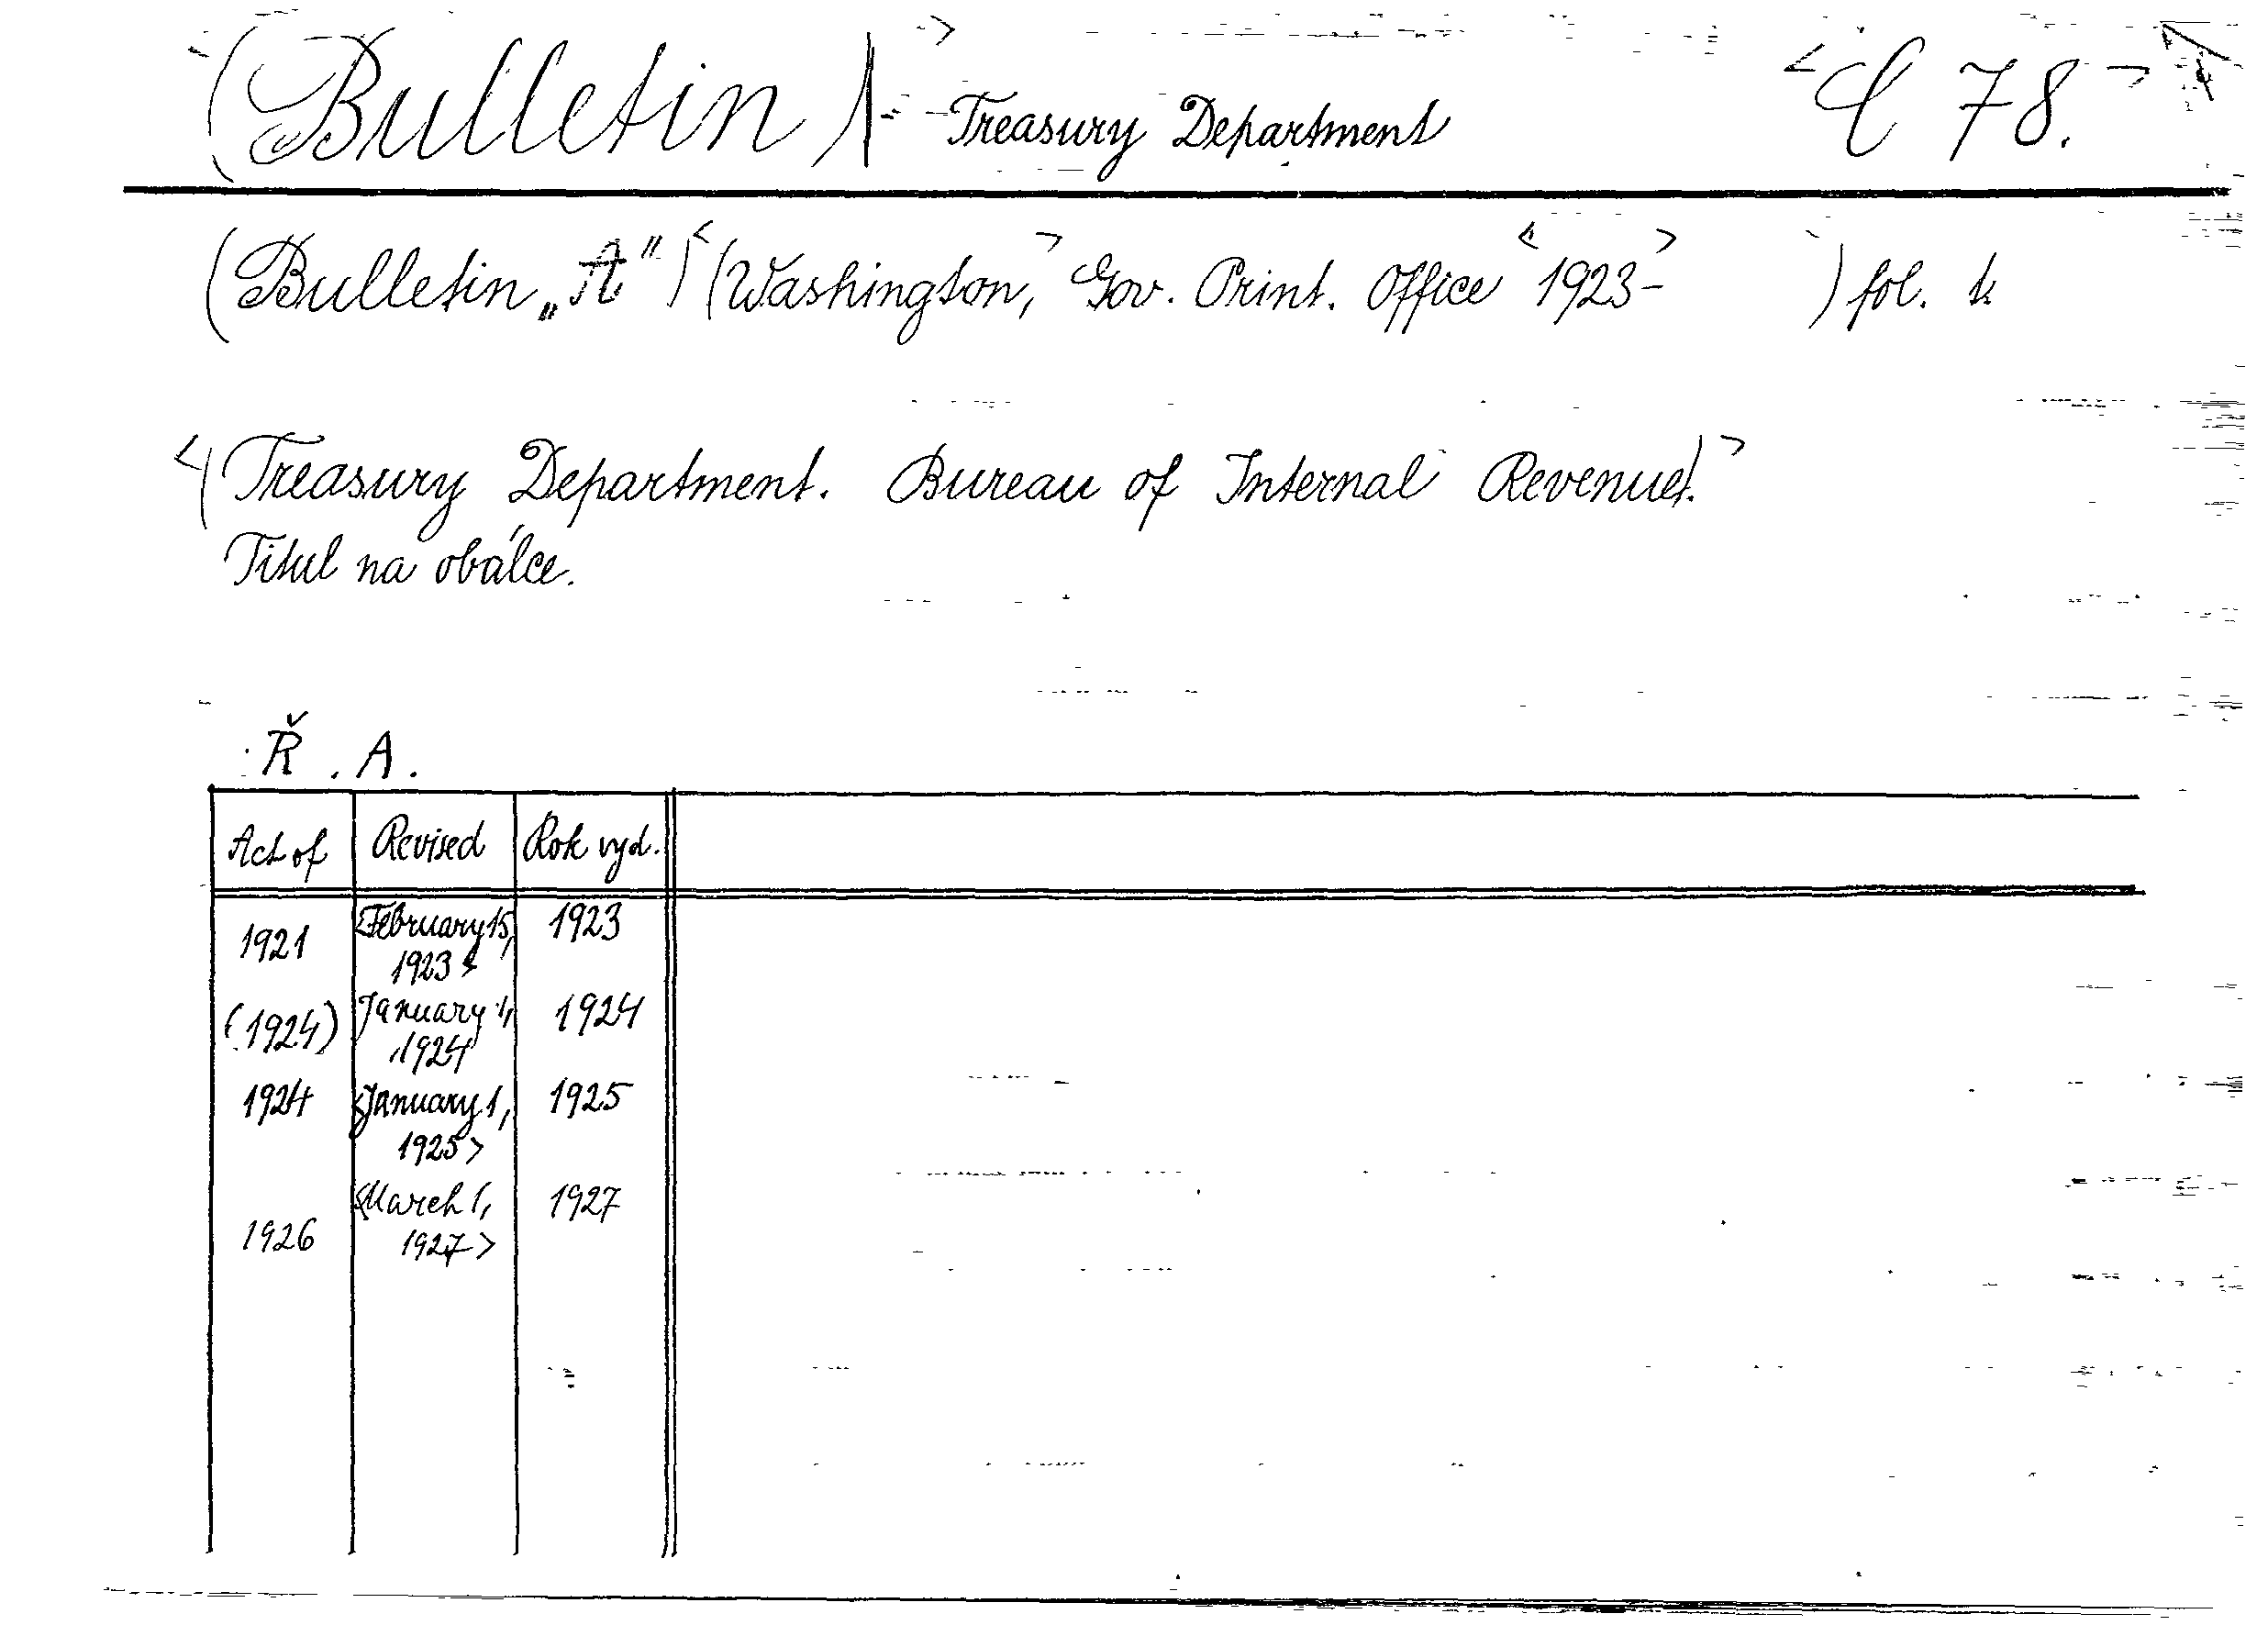 (Bulletin) - Treasury Department <C 78.>
(Bulletin „A“) <(Washington,> Gov. Print. Office <1923-> ) fol. k
<(Treasury Department. Bureau of Internal Revenue).>
Titul na obálce.
Ř. A.
Act of Revised Rok vyd.
1921 <February 15, 1923> 1923
(1924) January 1, 1924 1924
1924 <January 1, 1925> 1925
1926 <March 1, 1927> 1927